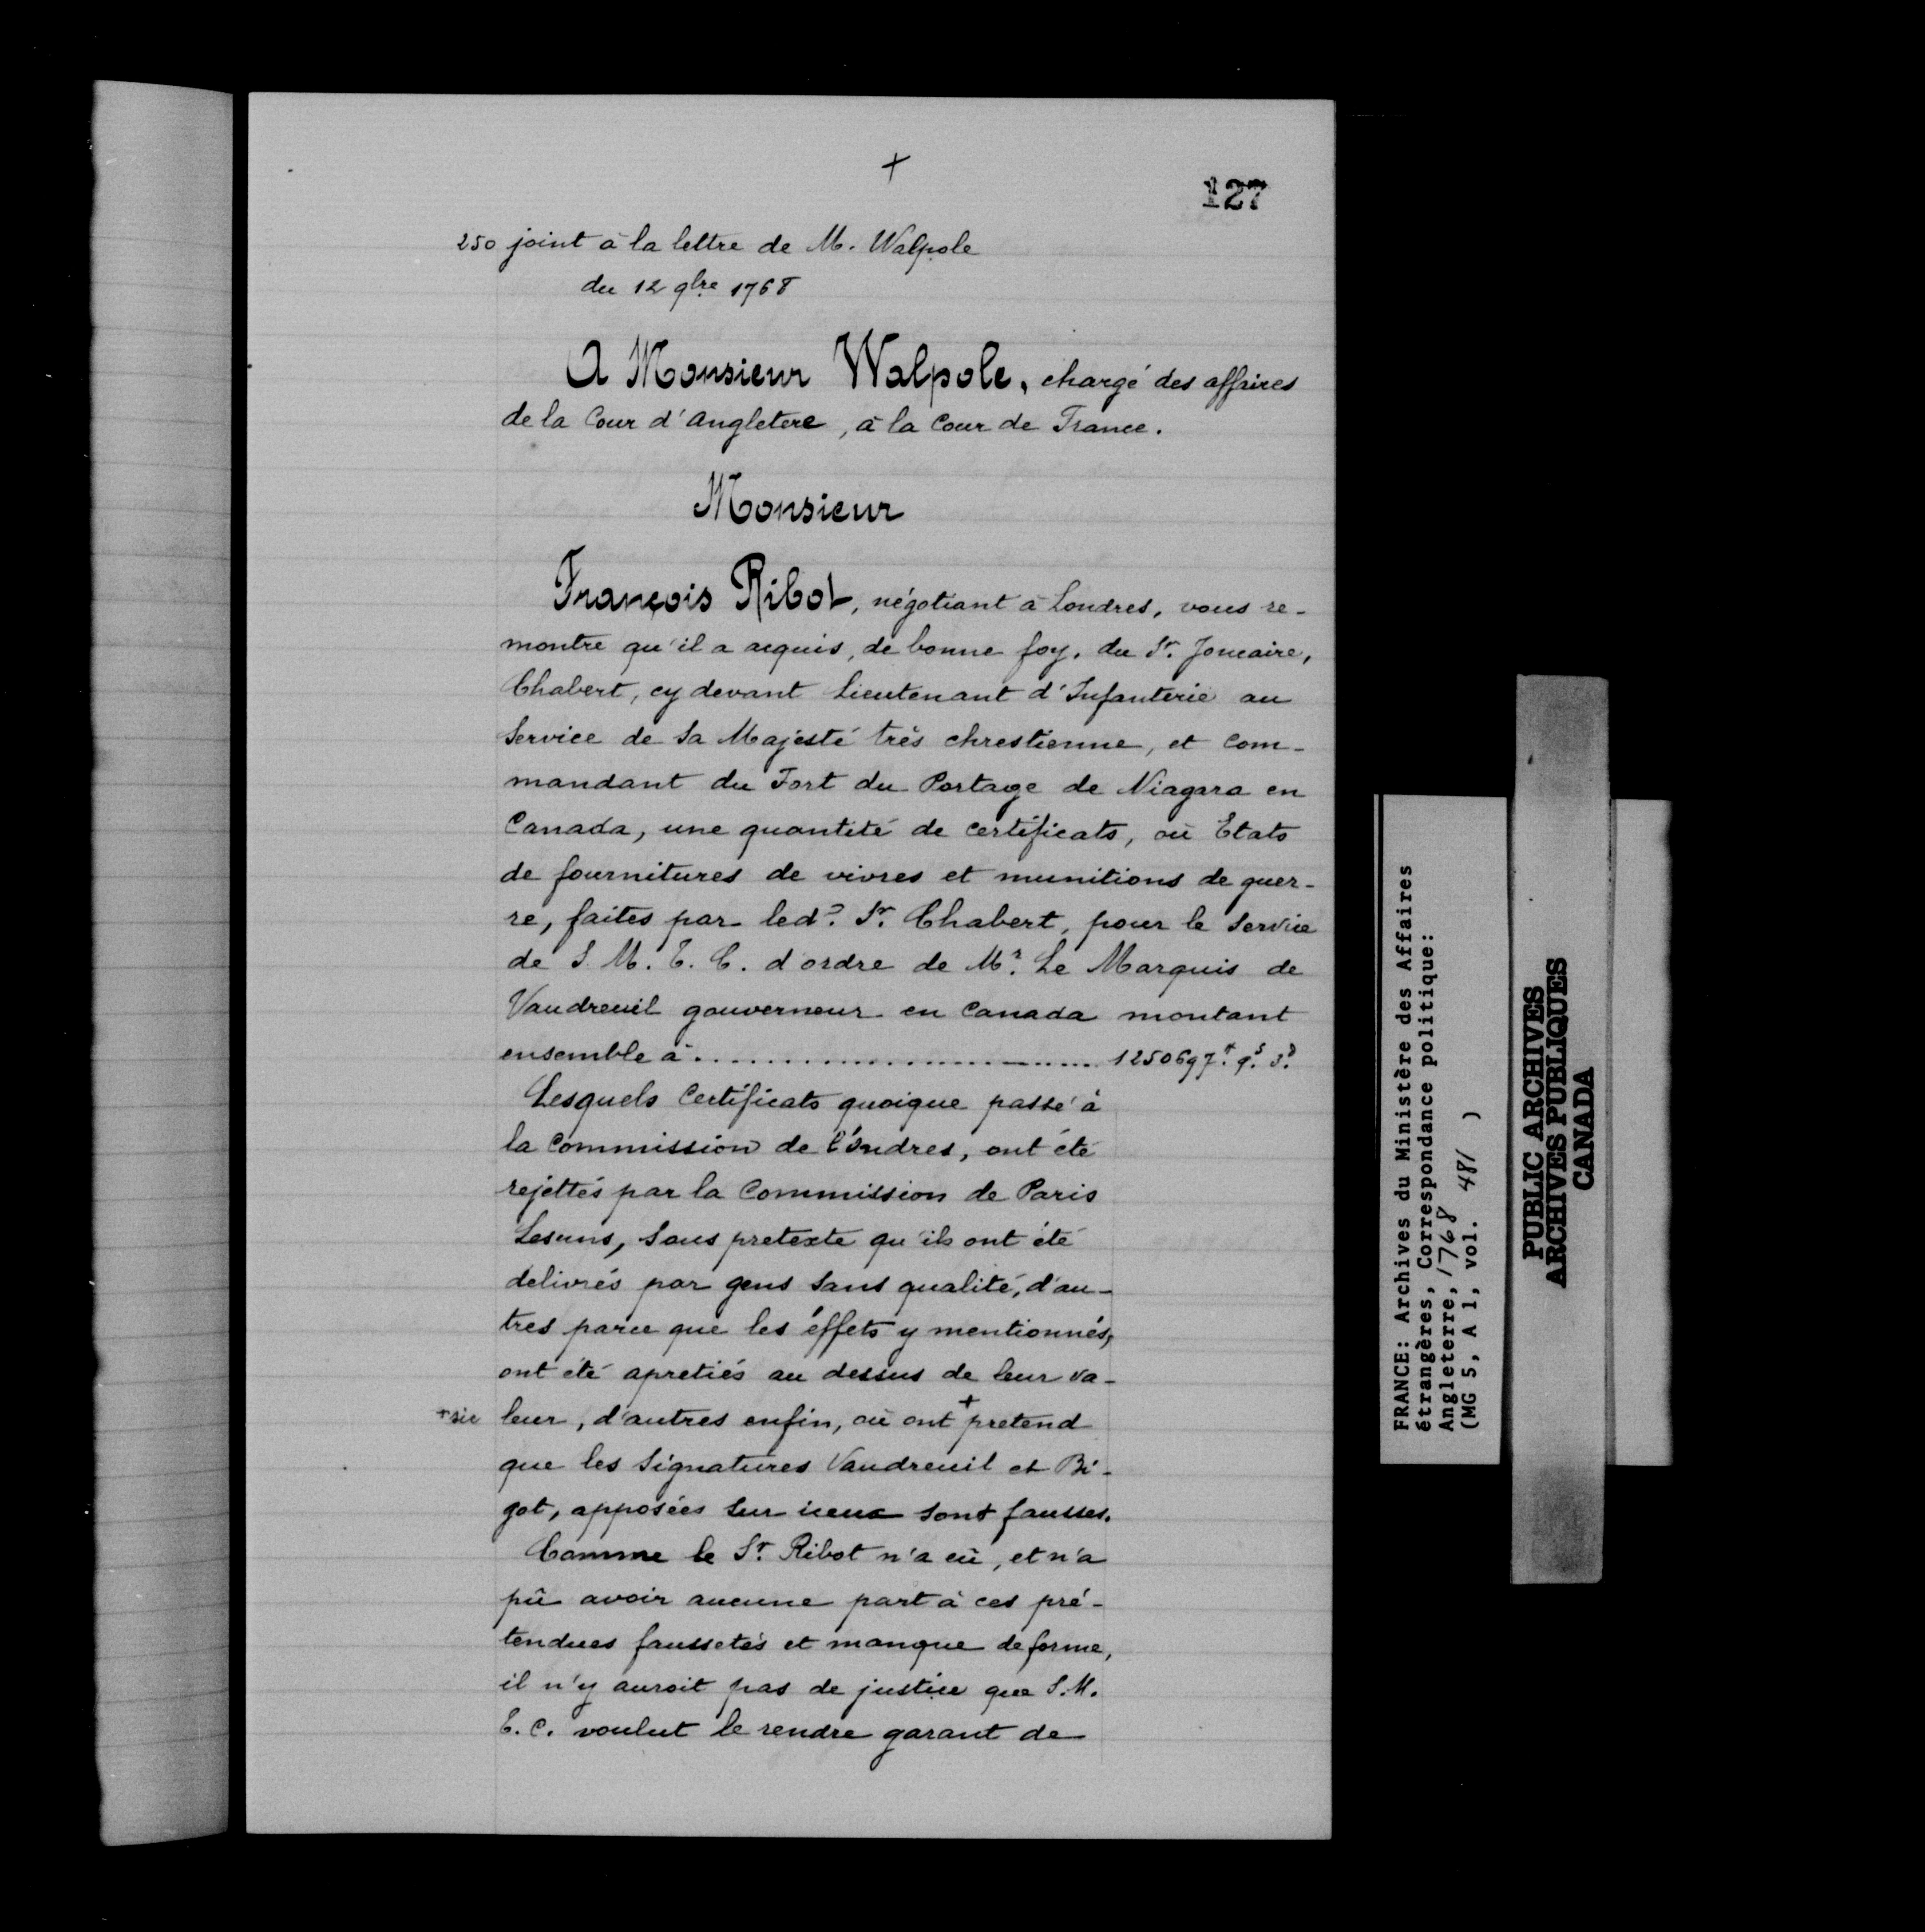 +
127
250 joint à la lettre de M. Walpole
du 12 9bre 1768
A Monsieur Walpole, chargé des affaires
de la Cour d'Angletere, à la Cour de France.
Monsieur
François Ribot, négotiant à Londres, vous re-
montre qu'il a acquis, de bonne foy, du Sr. Joncaire,
Chabert, cy devant Lieutenant d'Infanterie au
Service de Sa Majesté très chrestienne, et Com-
mandant du Fort du Portage de Niagara en
Canada, une quantité de certificats, où Etats
de fournitures de vivres et munitions de guer-
re, faites par led?. Sr. Chabert, pour le Service
de S. M. T. C. d'ordre de Mr. Le Marquis de
Vaudreuil gouverneur en Canada montant
ensemble à .......................... 1250697.# 9.s 3.d
Lesquels Certificats quoique passé à
la Commission de Londres, ont été
rejettés par la Commission de Paris
Lesuns, sous pretexte qu'ils ont été
delivrés par gens sans qualité, d'au-
tres parce que les éffets y mentionnés,
ont été apretiés au dessus de leur va-
+ sic leur, d'autres enfin, où ont + pretend
que les Signatures Vaudreuil et Bi-
got, apposées sur iceux sont fausses.
Comme le Sr. Ribot n'a eù, et n'a
pû avoir aucune part à ces pré-
tendues faussetés et manque de forme,
il n'y auroit pas de justice que S. M.
T. C. voulut le rendre garant de
FRANCE: Archives du Ministère des Affaires
étrangères, Correspondance politique:
Angleterre, 1768
(MG 5, A 1, vol. 481 )
PUBLIC ARCHIVES
ARCHIVES PUBLIQUES
CANADA